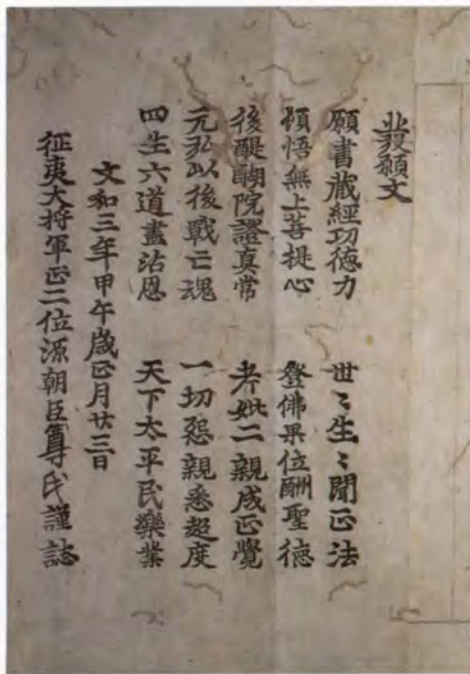 發願文
願書蔵經功徳力　世〻生〻聞正法
頓悟無上菩提心　登佛果位酬聖徳
後醍醐院證真常　考妣二親成正覺
元弘以後戰亡魂　一切怨親悉超度
四生六道盡沾恩　天下太平民樂業
文和三年甲午歳正月廿三日
征夷大将軍正二位源朝臣尊氏謹誌